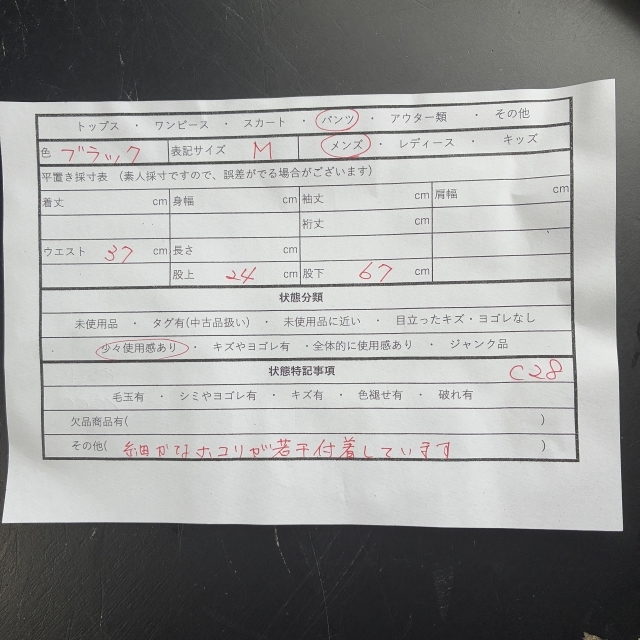 トップス ・ ワンピース ・ スカート ・ パンツ ・ アウター類 ・ その他
色 ブラック 表記サイズ M メンズ ・ レディース ・ キッズ
平置き採寸表 （素人採寸ですので、誤差がでる場合がございます）
着丈 cm 身幅 cm 袖丈 cm 肩幅 cm
裄丈 cm
ウエスト 37 cm 長さ cm
股上 24 cm 股下 67 cm
状態分類
未使用品 ・ タグ有(中古品扱い) ・ 未使用品に近い ・ 目立ったキズ・ヨゴレなし
少々使用感あり ・ キズやヨゴレ有 ・全体的に使用感あり ・ ジャンク品
状態特記事項 C28
毛玉有 ・ シミやヨゴレ有 ・ キズ有 ・ 色褪せ有 ・ 破れ有
欠品商品有( )
その他( 細かなホコリが若干付着しています )